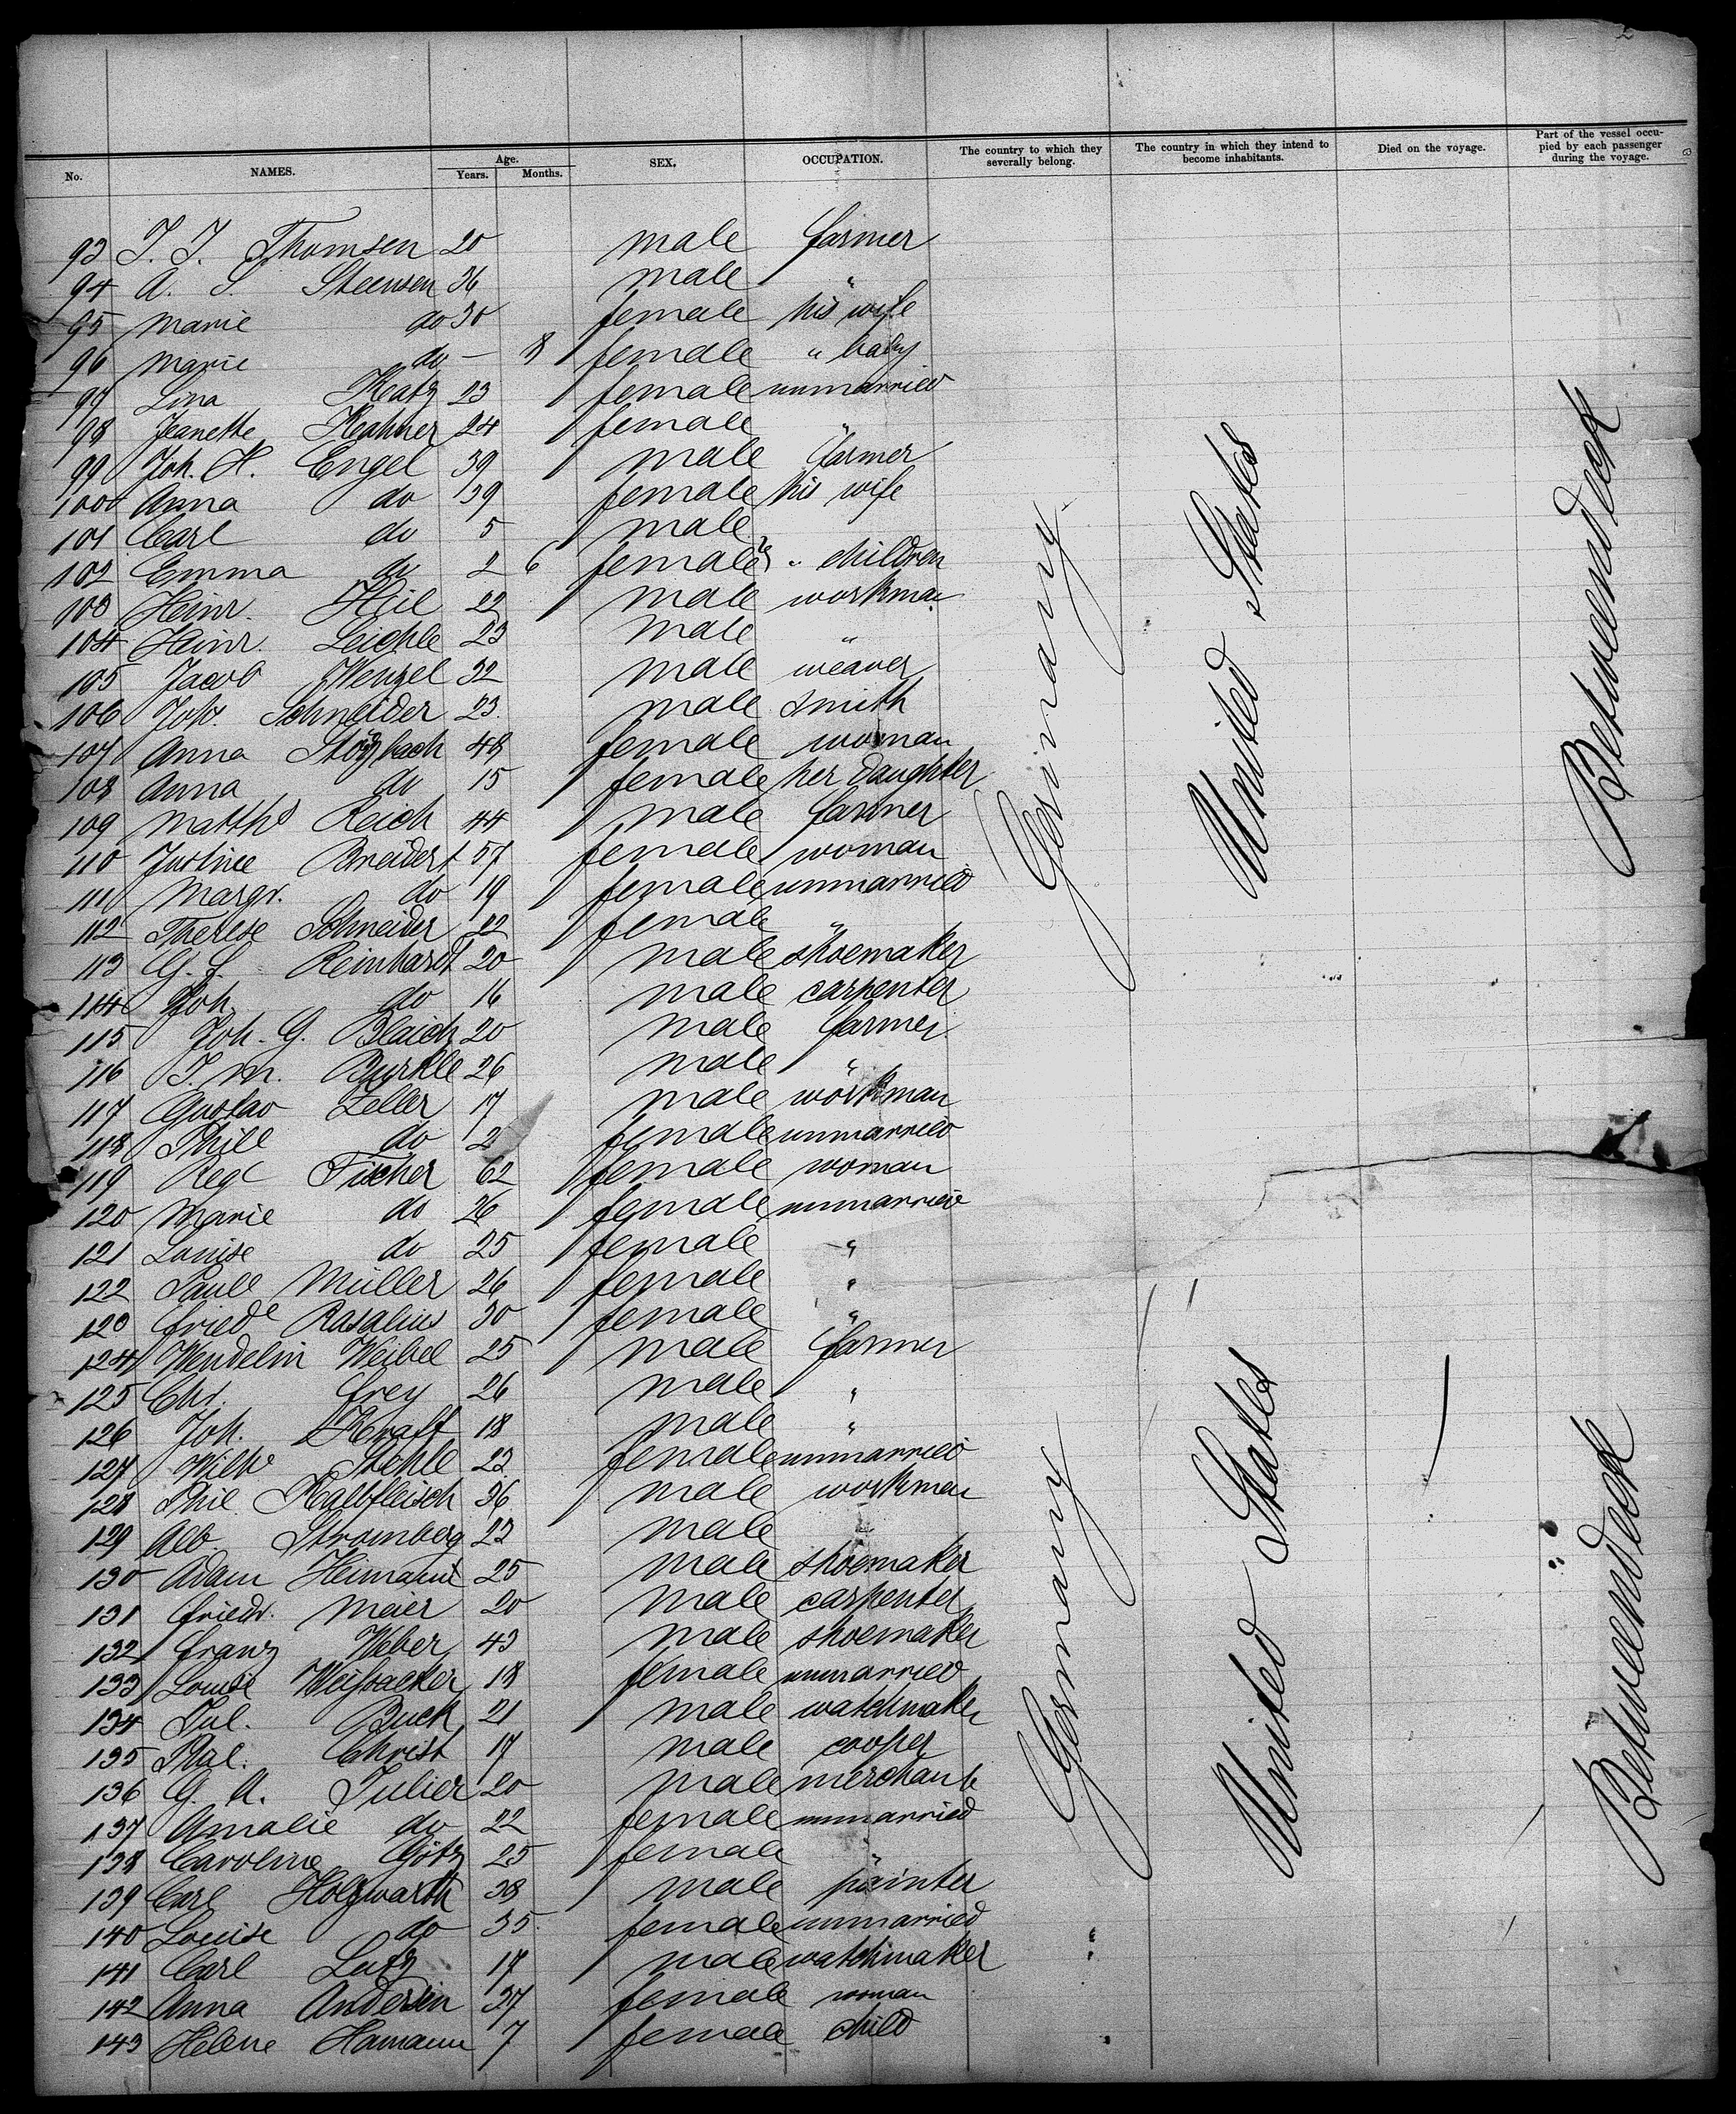 2
No. NAMES. Age. Years. Months. SEX. OCCUPATION. The country to which they severally belong. The country in which they intend to become inhabitants. Died on the voyage. Part of the vessel occupied by each passenger during the voyage.
93 J. J. Thomsen 20 male farmer
94 A. S. Steensen 36 male "
95 Marie do 30 female his wife
96 Marie do — 8 female " baby
97 Lina Katz 23 female unmarried
98 Jeanette Hahner 24 female "
99 Joh. H. Engel 39 male farmer
100 Anna do 39 female his wife
101 Carl do 5 male
102 Emma do 2 6 female " children
103 Heinr. Heil 22 male workman
104 Heinr. Leichle 23 male "
105 Jacob Wenzel 32 male weaver
106 Joh. Schneider 23 male smith
107 Anna 48 female woman
108 Anna do 15 female her daughter
109 Matths Reich 44 male farmer
110 Justine Breidert 57 female woman
111 Margr. do 19 female unmarried
112 Therese Schneider 22 female "
113 G. F. Reinhardt 20 male shoemaker
114 Joh. do 16 male carpenter
115 Joh. G. Blaich 20 male farmer
116 J. M. Burkle 26 male "
117 Gustav Zeller 17 male workman
118 Phil do 2 female unmarried
119 Rege Fischer 62 female woman
120 Marie do 26 female unmarried
121 Louise do 25 female "
122 Paull Müller 26 female "
123 Friede Rasalius 30 female "
124 Wendelin Weibel 25 male farmer
125 Chr. Frey 26 male "
126 Joh. Kraft 18 male "
127 Wilh Stehle 23 female unmarried
128 Phil Kalbfleisch 36 male workman
129 Alb. Stromberg 23 male "
130 Adam Heimann 25 male shoemaker
131 Friedr. Maier 20 male carpenter
132 Franz Weber 43 male shoemaker
133 Louise Weißacker 18 female unmarried
134 Jul. Buck 21 male watchmaker
135 Christ 17 male cooper
136 G. A. Julier 20 male merchant
137 Amalie do 22 female unmarried
138 Caroline Götz 25 female "
139 Carl Holzwarth 38 male painter
140 Louise do 35 female unmarried
141 Carl Lutz 17 male watchmaker
142 Anna Andersin 37 female woman
143 Helene Hamann 7 female child
Germany
United States
Betweendeck
Germany
United States
Betweendeck